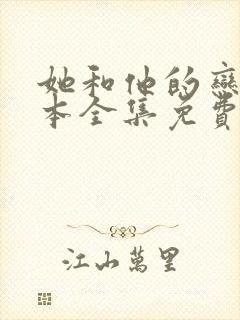 她和他的戀
本全集免費
江山萬里